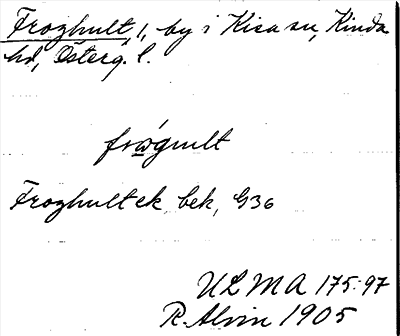 Froghult, 1, by i Kisa sn, Kinda
hd, Österg. l.
frógult
Froghult ek bek, G36
ULMA 175:97
R. Alvin 1905